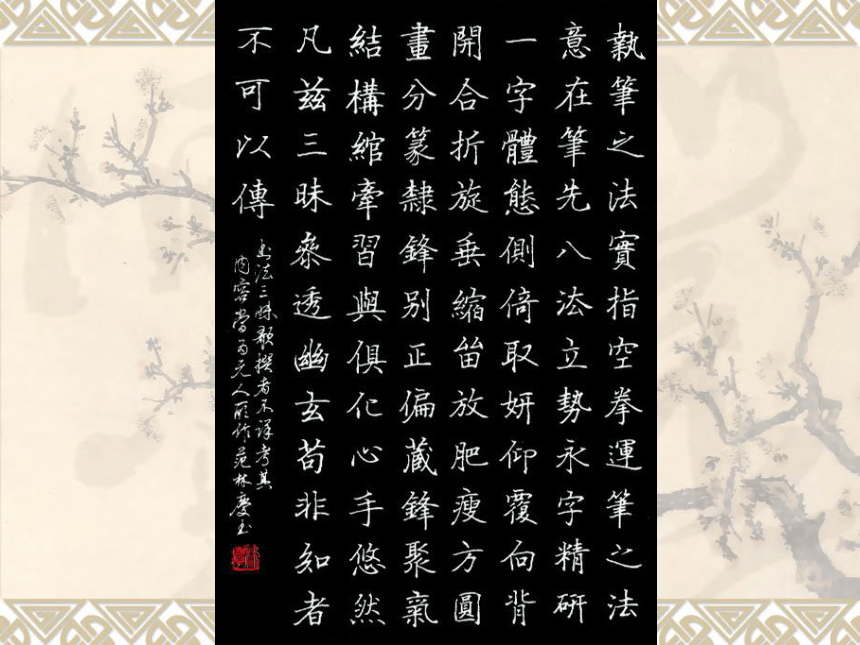 執筆之法實指空拳運筆之法
意在筆先八法立勢永字精研
一字體態側倚取妍仰覆向背
開合折旋垂縮留放肥瘦方圓
畫分篆隸鋒别正偏藏鋒聚氣
結構綰牽習與俱化心手悠然
凡兹三昧叅透幽玄苟非知者
不可以傳
书法三昧歌撰者不详考其
内容当为元人所作范林庆书